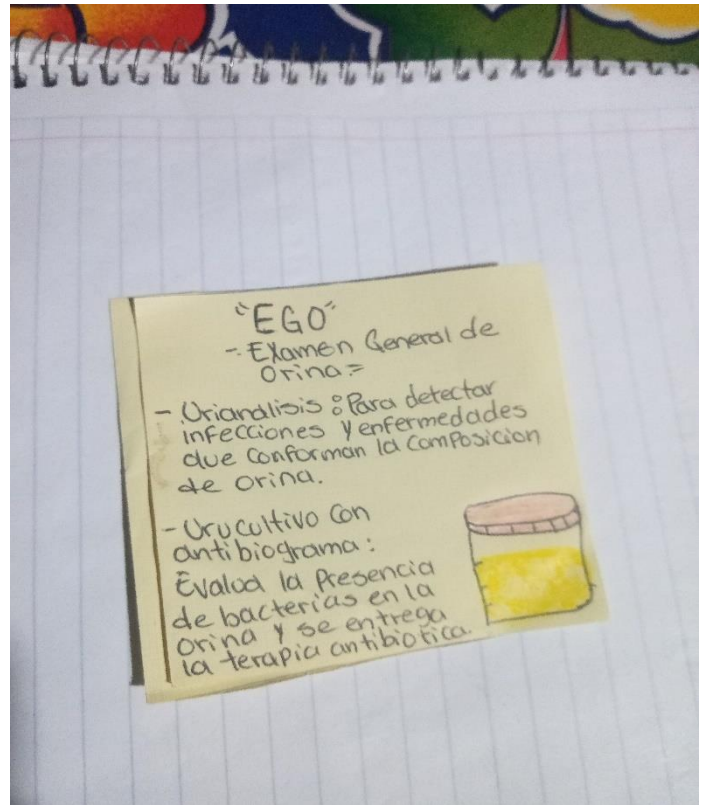 "EGO"
-Examen General de
Orina=
- Urianalisis: Para detectar
infecciones y enfermedades
que conforman la composicion
de orina.
- Urucultivo con
antibiograma:
Evalua la presencia
de bacterias en la
orina y se entrega
la terapia antibiotica.